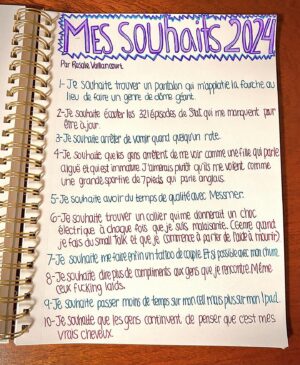 MES SOUHAITS 2024
Par Rosalie Vaillancourt
1- Je souhaite trouver un pantalon qui m'applatie la fourche au
lieu de faire un genre de dôme géant.
2- Je souhaite écouter les 321 épisodes de Stat qui me manquent pour
être à jour.
3- Je souhaite arrêter de vomir quand quelqu'un rote.
4- Je souhaite que les gens arrêtent de me voir comme une fille qui parle
aïgue et qui est immature J'aimerais plutôt qu'ils me voient comme
une grande sportive de 7 pieds qui parle anglais.
5- Je souhaite avoir du temps de qualité avec Messmer.
6- Je souhaite trouver un collier qui me donnerait un choc
électrique à chaque fois que je suis malaisante. (Comme quand
je fais du Small Talk et que je commence à parler de l'aide à mourir)
7- Je souhaite me faire enfin un tattoo de couple. Et si possible avec mon chum.
8- Je souhaite dire plus de compliments aux gens que je rencontre. Même
ceux fucking laids.
9- Je souhaite passer moins de temps sur mon cell mais plus sur mon Ipad.
10- Je souhaite que les gens continuent de penser que c'est mes
vrais cheveux.